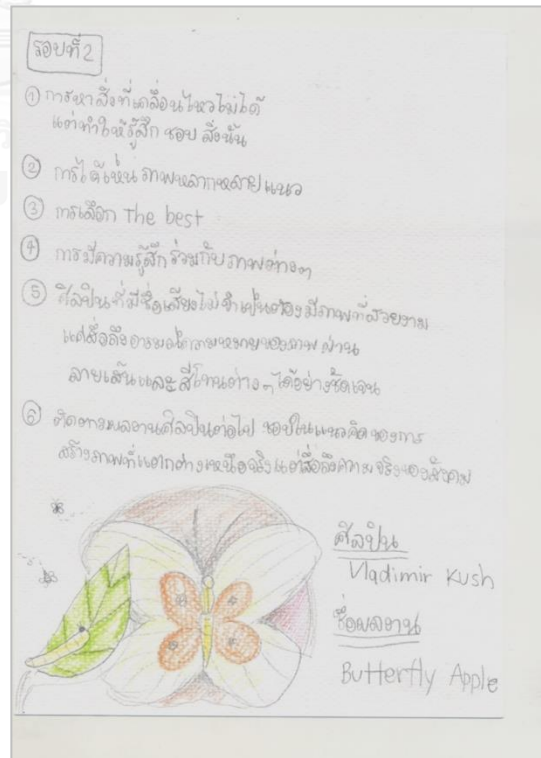 รอบที่ 2
① การหาสิ่งที่เคลื่อนไหวไม่ได้
แต่ทำให้รู้สึก ชอบ สิ่งนั้น
② การได้เห็น ภาพหลากหลายแนว
③ การเลือก The best
④ การมีความรู้สึกร่วมกับภาพต่างๆ
⑤ ศิลปินที่มีชื่อเสียงไม่จำเป็นต้องมีภาพที่สวยงาม
แต่สื่อถึงอารมณ์ความหมายของภาพ ผ่าน
ลายเส้นและสีโทนต่างๆ ได้อย่างชัดเจน
⑥ ติดตามผลงานศิลปินต่อไป ชอบในแนวคิดของการ
สร้างภาพที่แตกต่างเหนือจริงแต่สื่อถึงความจริงของสังคม
ศิลปิน
Vladimir Kush
ชื่อผลงาน
Butterfly Apple